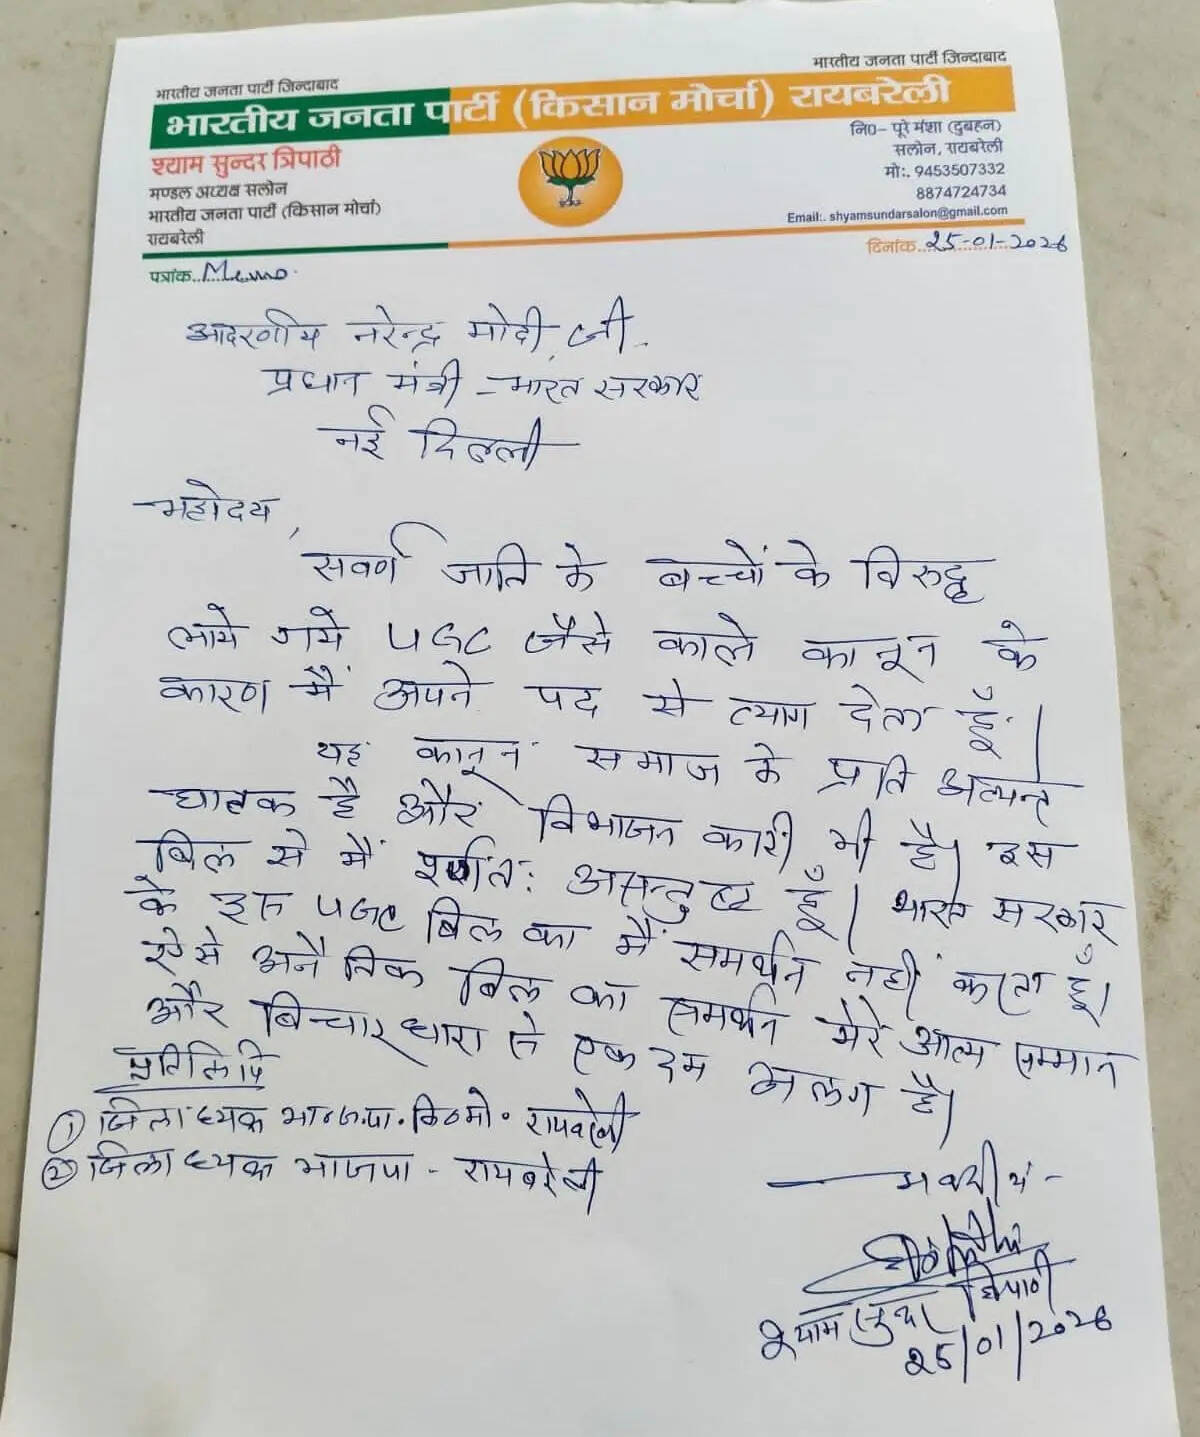 भारतीय जनता पार्टी जिन्दाबाद
भारतीय जनता पार्टी जिन्दाबाद
भारतीय जनता पार्टी (किसान मोर्चा) रायबरेली
श्याम सुन्दर त्रिपाठी
मण्डल अध्यक्ष सलोन
भारतीय जनता पार्टी (किसान मोर्चा)
रायबरेली
नि0- पूरे मंशा (दुबहन)
सलोन, रायबरेली
मो:. 9453507332
8874724734
Email:. shyamsundarsalon@gmail.com
पत्रांक..Memo.
दिनांक..25-01-2026
आदरणीय नरेन्द्र मोदी जी.
प्रधान मंत्री - भारत सरकार
नई दिल्ली
महोदय,
सवर्ण जाति के बच्चों के विरुद्ध
लाये गये UGC जैसे काले कानून के
कारण मैं अपने पद से त्याग देता हूँ।
यह कानून समाज के प्रति अत्यन्त
घातक है और विभाजन कारी भी है। इस
बिल से मैं पूर्णतः असन्तुष्ट हूँ। भारत सरकार
के इस UGC बिल का मैं समर्थन नहीं करता हूँ।
ऐसे अनैतिक बिल का समर्थन मेरे आत्म सम्मान
और विचारधारा से एकदम अलग है।
प्रतिलिपि
① जिलाध्यक्ष भा.ज.पा. कि0मो. रायबरेली
② जिलाध्यक्ष भाजपा - रायबरेली
भवदीय -
श्याम सुन्दर त्रिपाठी
25/01/2026